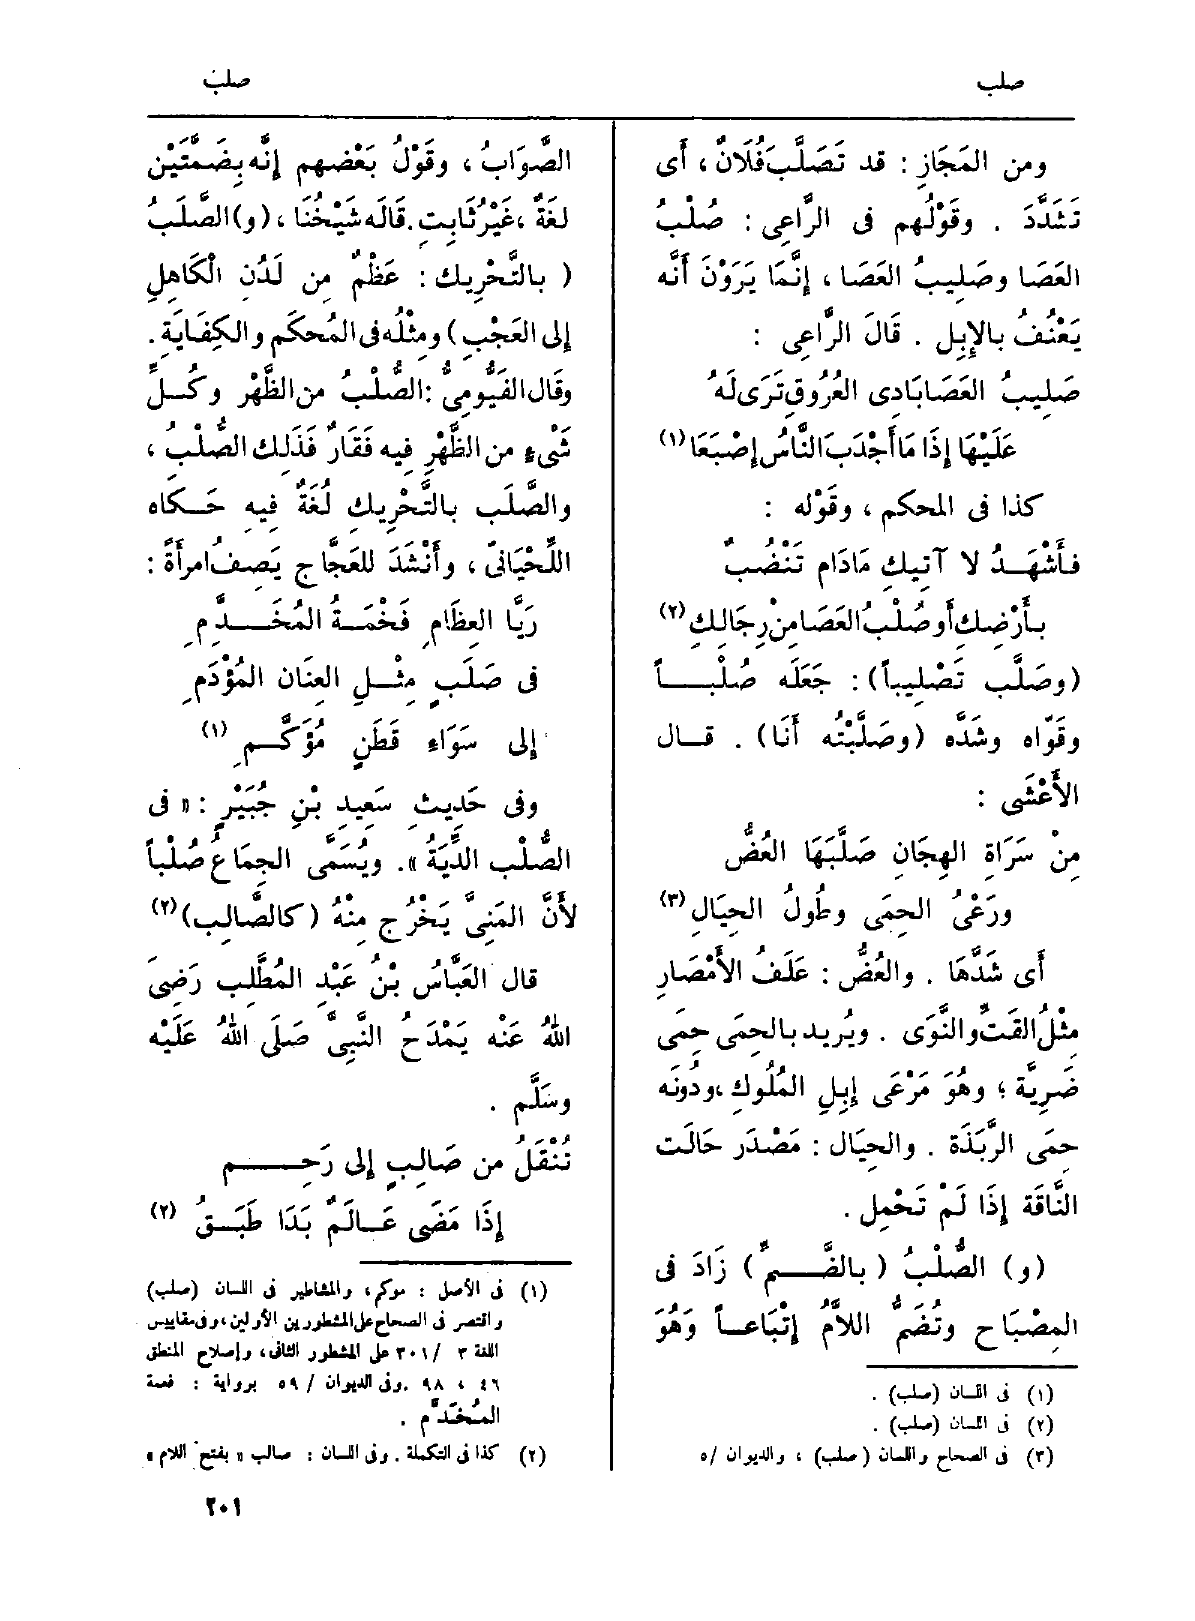 صلب
صلب
ومن المَجَازِ : قد تَصَلَّب فُلَانٌ ، أَى
تَشَدَّدَ . وقَوْلُهم فى الرَّاعِى : صُلْبُ
العَصَا وصَلِيبُ العَصَا ، إِنَّمَا يَرَوْنَ أَنَّه
يَعْنُفُ بالإِبِل . قَالَ الرَّاعِى :
صَلِيبُ العَصَا بَادِى العُرُوقِ تَرَى لَهُ
عَلَيْهَا إِذَا مَا أَجْدَبَ النَّاسُ إِصْبَعَا (١)
كذا فى المحكم ، وقَوْله :
فأَشْهَدُ لا آتِيكِ مَادَام تَنْضُبٌ
بأَرْضِك أَو صُلْبُ العَصَا مِنْ رِجَالِكِ (٢)
(وصَلَّب تَصْلِيباً) : جَعَلَه صُلْباً
وقَوّاه وشَدَّه (وصَلَّبْتُه أَنَا) . قال
الأَعْشَى :
مِنْ سَرَاةِ الهِجَانِ صَلَّبَهَا العُضُّ
ورَعْىُ الحِمَى وطُولُ الحِيَالِ (٣)
أَى شَدَّهَا . والعُضُّ : عَلَفُ الأَمْصَارِ
مِثْلُ القَتِّ والنَّوَى . ويُرِيد بالحِمَى حِمَى
ضَرِيَّة ؛ وهُوَ مَرْعَى إِبِلِ المُلُوكِ ، ودُونَه
حِمَى الرَّبَذَة . والحِيَال : مَصْدَر حَالَت
النَّاقَة إِذَا لَمْ تَحْمِل .
(و) الصُّلْبُ (بالضَّمِّ) زَادَ فى
المِصْبَاح وتُضَمُّ اللاَّمُ إِتْبَاعاً وَهُوَ
(١) فى اللسان (صلب) .
(٢) فى اللسان (صلب) .
(٣) فى الصحاح واللسان (صلب) ، والديوان /٥
الصَّوَابُ ، وقَوْلُ بَعْضهم إِنَّه بِضَمَّتَيْن
لغَةٌ ، غَيْرُ ثَابِت . قَالَه شَيْخُنَا ، (و) الصَّلَبُ
( بالتَّحْرِيك : عَظْمٌ مِن لَدُنِ الْكَاهِلِ
إِلى العَجْبِ) ومِثْلُه فى المُحكَم والكِفَايَةِ .
وقَال الفَيُّومِىُّ : الصُّلْبُ من الظَّهْر وكُلُّ
شَىْءٍ من الظَّهْرِ فِيه فَقَارٌ فَذَلِك الصُّلْبُ ،
والصَّلَب بالتَّحْرِيكِ لُغَةٌ فِيهِ حَكَاه
اللِّحْيَانىّ ، وأَنْشَدَ للعَجَّاج يَصِفُ امرأَةً :
رَيَّا العِظَامِ فَخْمَةُ المُخَدَّمِ
فى صَلَبٍ مِثْلِ العِنَان المُؤْدَمِ
إِلى سَوَاءِ قَطَنٍ مُؤَكَّمِ (١)
وفى حَدِيثِ سَعِيدِ بْنِ جُبَيْرٍ : « فى
الصُّلْبِ الدِّيَةُ ». ويُسَمَّى الجِمَاعُ صُلْباً
لأَنَّ المَنِىَّ يَخْرُج مِنْهُ (كالصَّالِب) (٢)
قال العَبَّاسُ بْنُ عَبْدِ المُطَّلِب رَضِىَ
اللهُ عَنْه يَمْدَحُ النَّبِىَّ صَلَى اللهُ عَلَيْه
وسَلَّم .
تُنْقَلُ من صَالِبٍ إِلى رَحِمٍ
إِذَا مَضَى عَالَمٌ بَدَا طَبَقُ (٢)
(١) فى الأصل : موكم، والمشاطير فى اللسان (صلب)
واقتصر فى الصحاح على المشطورين الأولين، وفى مقاييس
اللغة ٣ /٣٠١ على المشطور الثانى، وإصلاح المنطق
٤٦ ، ٩٨ . وفى الديوان /٥٩ برواية : فعمة
المُخَدَّم .
(٢) كذا فى التكملة . وفى اللسان : صالب « بفتح اللام »
٢٠١